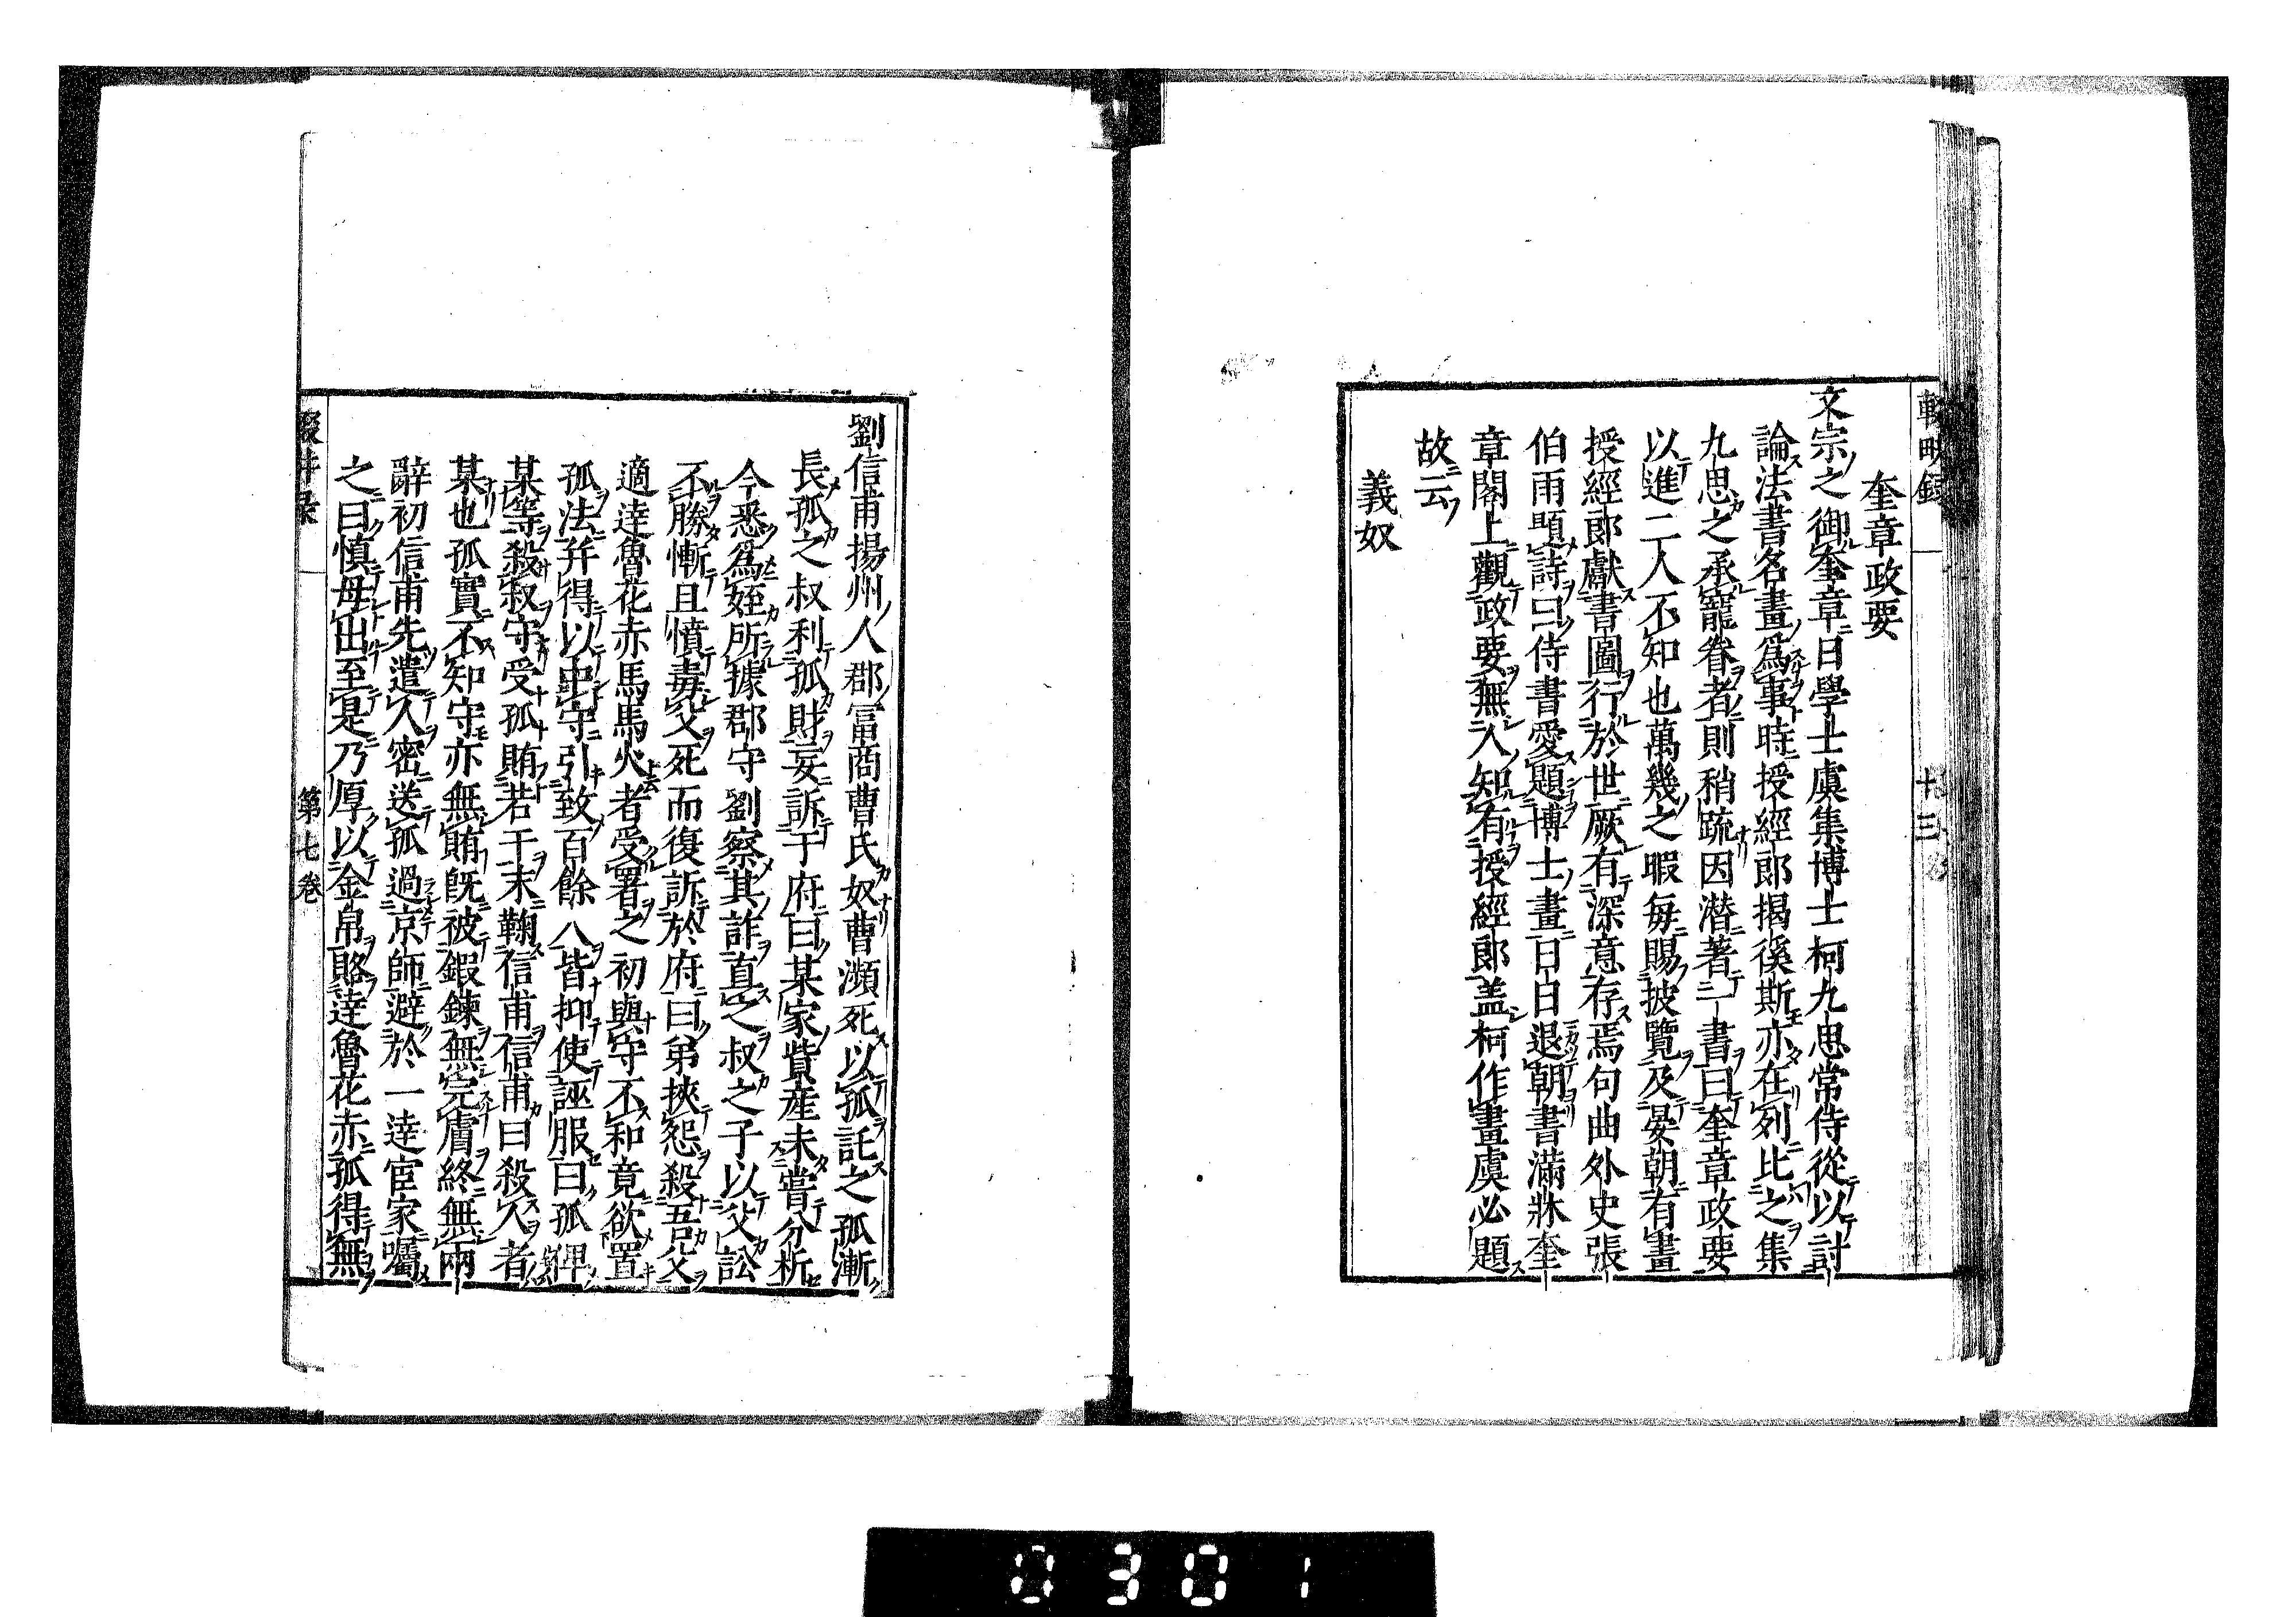 輟畊録
十三
奎章政要
文宗之御奎章日學士虞集博士柯九思常侍從以討
論法書名畫爲事時授經郎揭徯斯亦在列比之集
九思之承寵眷者則稍疏因潜著一書曰奎章政要
以進二人不知也萬幾之暇每賜披覽及晏朝有畫
授經郎獻書圖行於世厥有深意存焉句曲外史張
伯雨題詩曰侍書愛題博士畫日日退朝書滿牀奎
章閣上觀政要無人知有授經郎盖柯作畫虞必題
故云
義奴
劉信甫揚州人郡冨商曹氏奴曹瀕死以孤託之孤漸
長孤之叔利孤財妄訴于府曰某家貲産未嘗分析
今悉爲姪所據郡守劉察其詐直之叔之子以父訟
不勝慚且憤毒父死而復訴於府曰弟挾怨殺吾父
適達魯花赤馬馬火者受署之初與守不和竟欲置
孤法并得以中守引致百餘人皆抑使誣服曰孤俾
某等殺叔守受孤賄若干末鞠信甫信甫曰殺人者
某也孤實不知守亦無賄旣被鍜鍊無完膚終無兩
辭初信甫先遣人密送孤過京師避於一達官家囑
之曰慎毋出至是乃厚以金帛賂達魯花赤孤得無
輟耕录
第七卷
0301